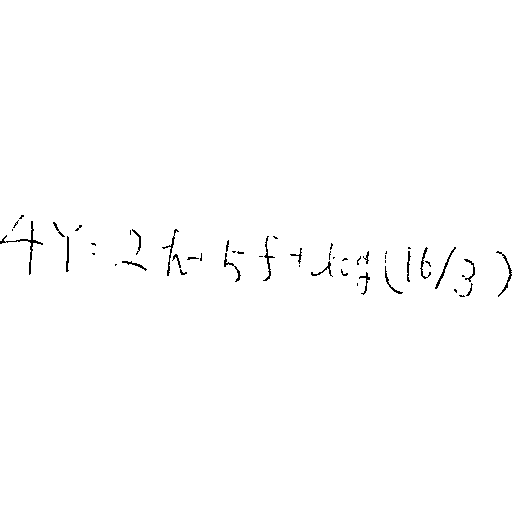 4Y = 2h + 5f + log(16/3)